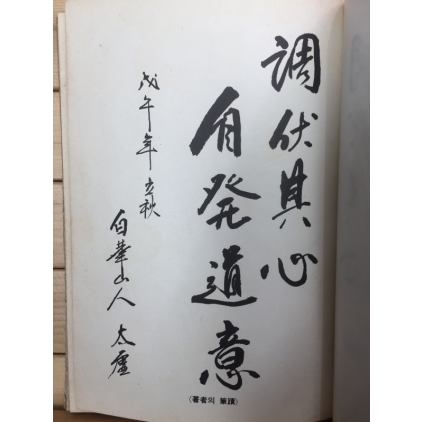 调伏其心
自発道意
戊午年 立秋
白華山人 太虛
(著者의 筆蹟)